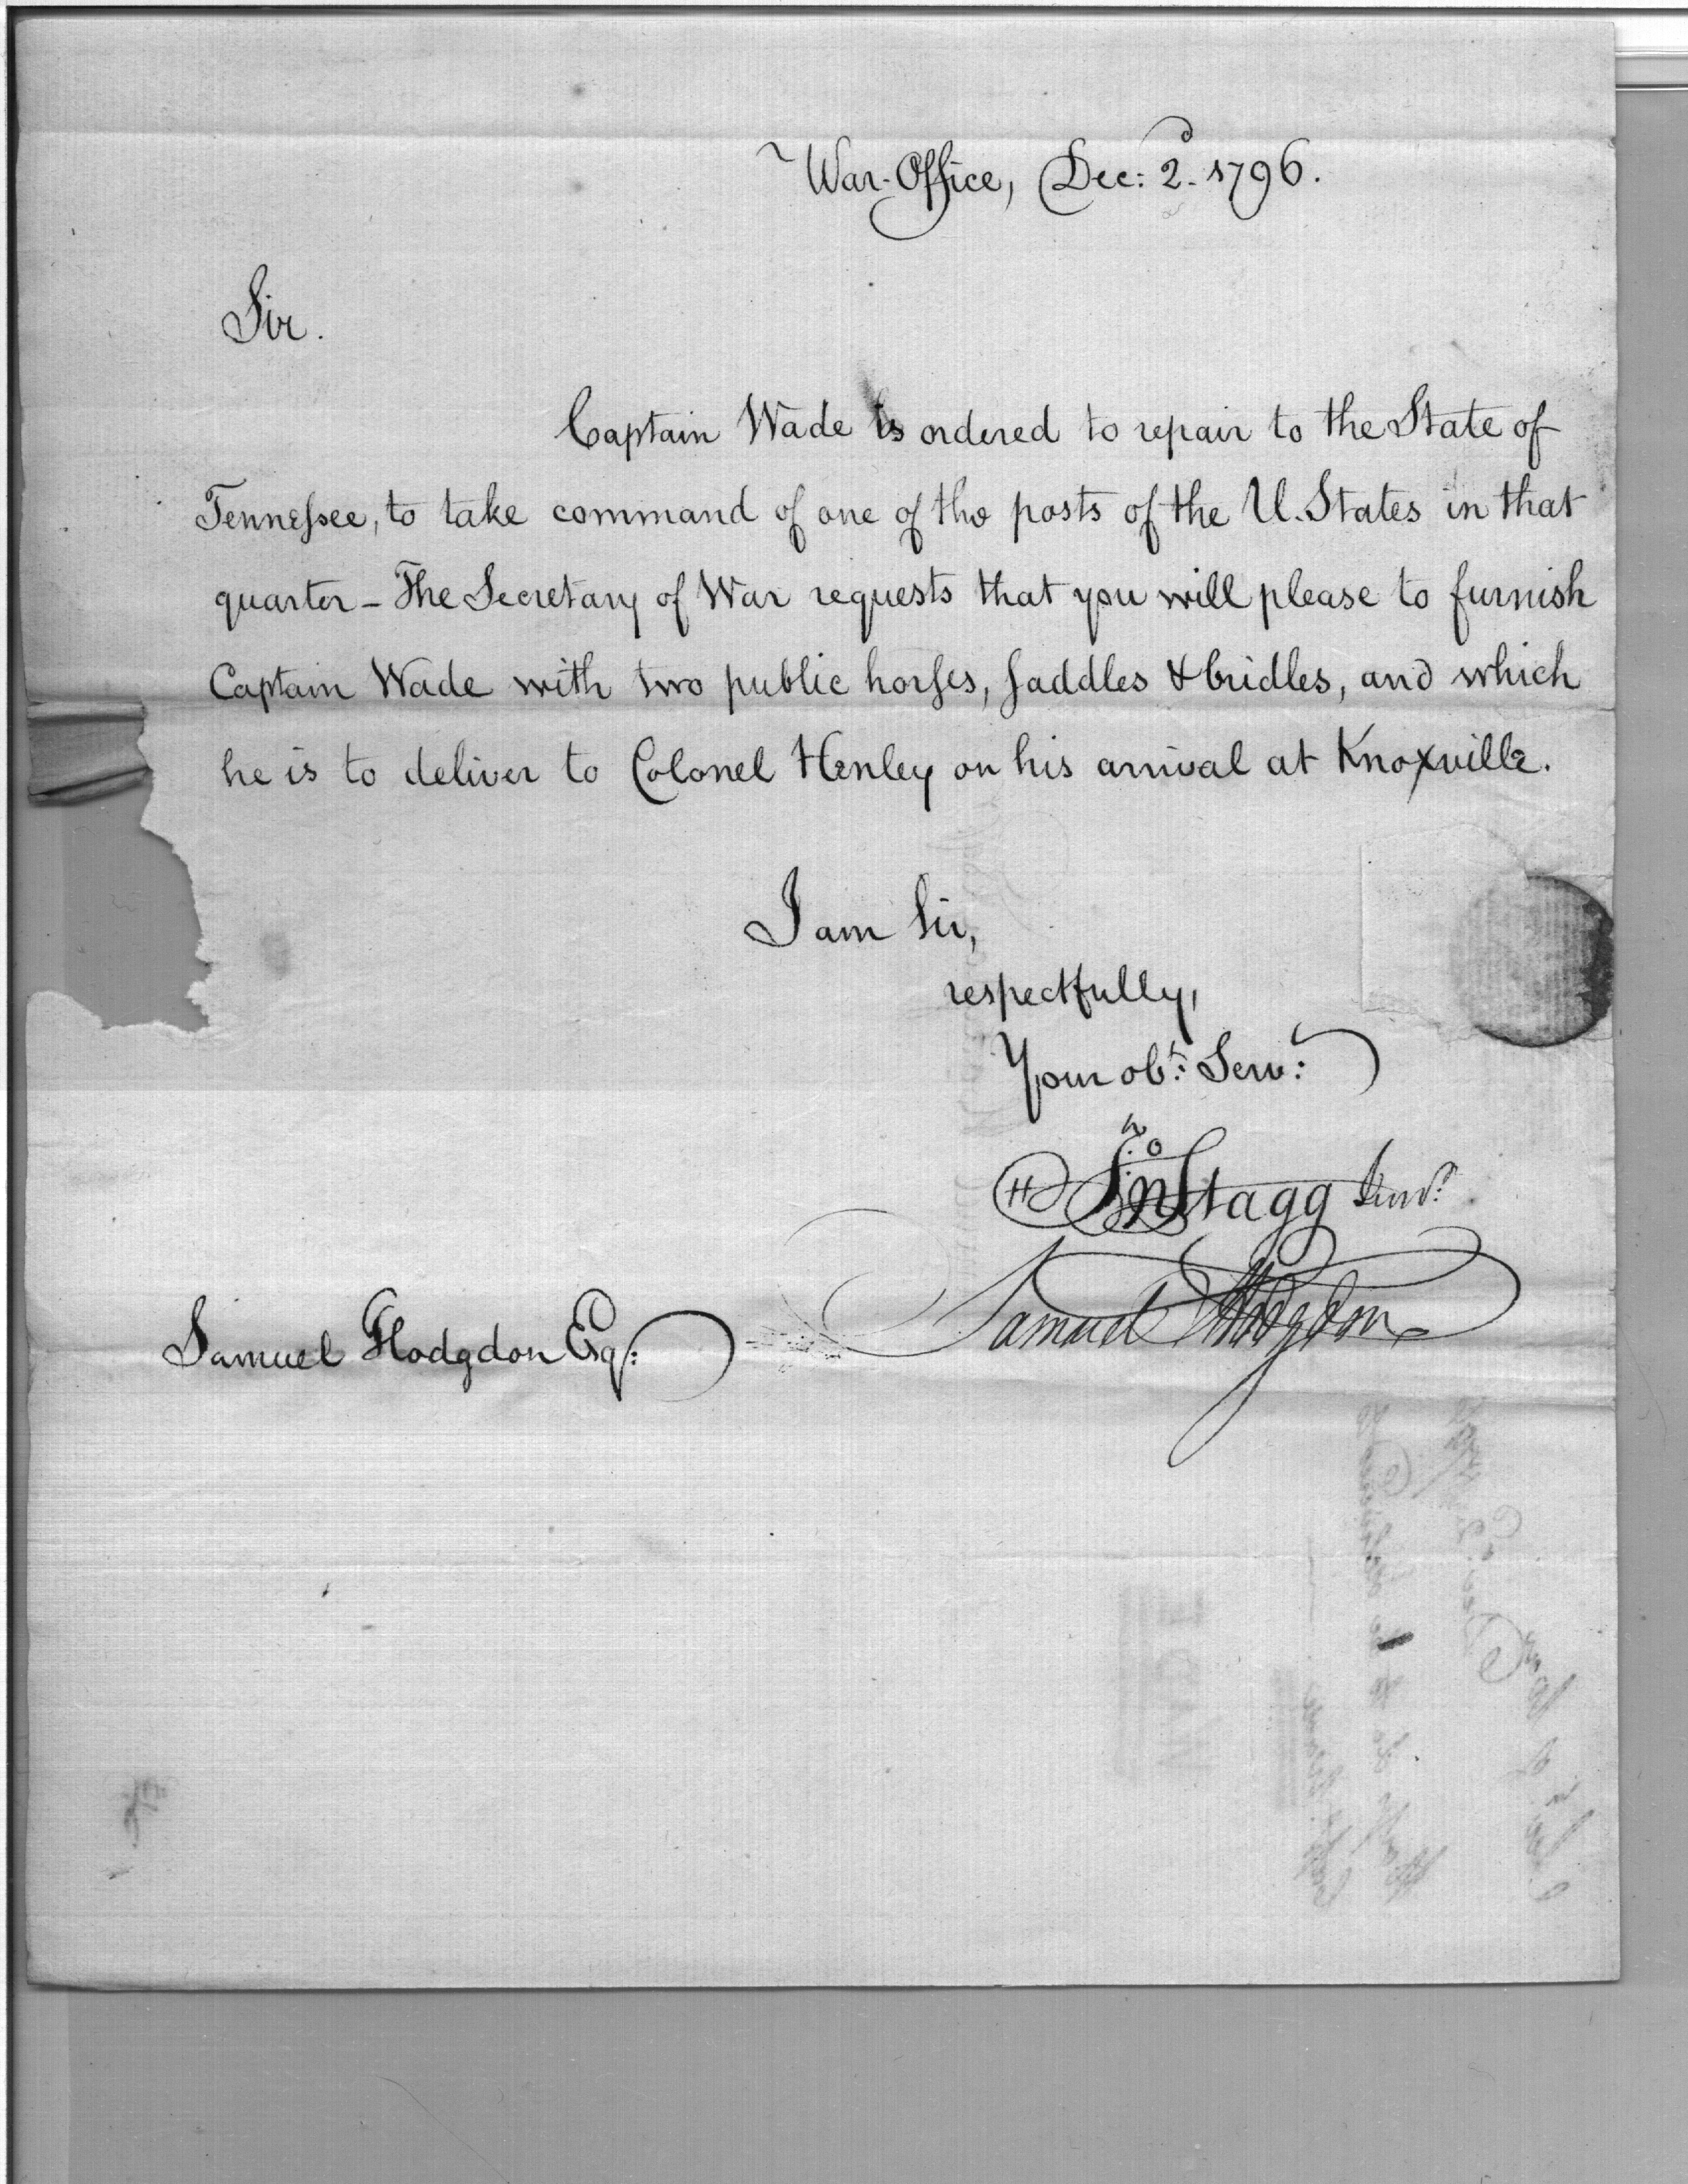 War-Office, Dec: 2d. 1796.
Sir.
Captain Wade is ordered to repair to the State of
Tenneſsee, to take command of one of the posts of the U. States in that
quarter – The Secretary of War requests that you will please to furnish
Captain Wade with two public horſes, ſaddles & bridles, and which
he is to deliver to Colonel Henley on his arrival at Knoxville.
I am Sir,
respectfully,
Your obt: Serv:
Jno Stagg Junr.
Samuel Hodgdon Esq:
Samuel Hodgdon